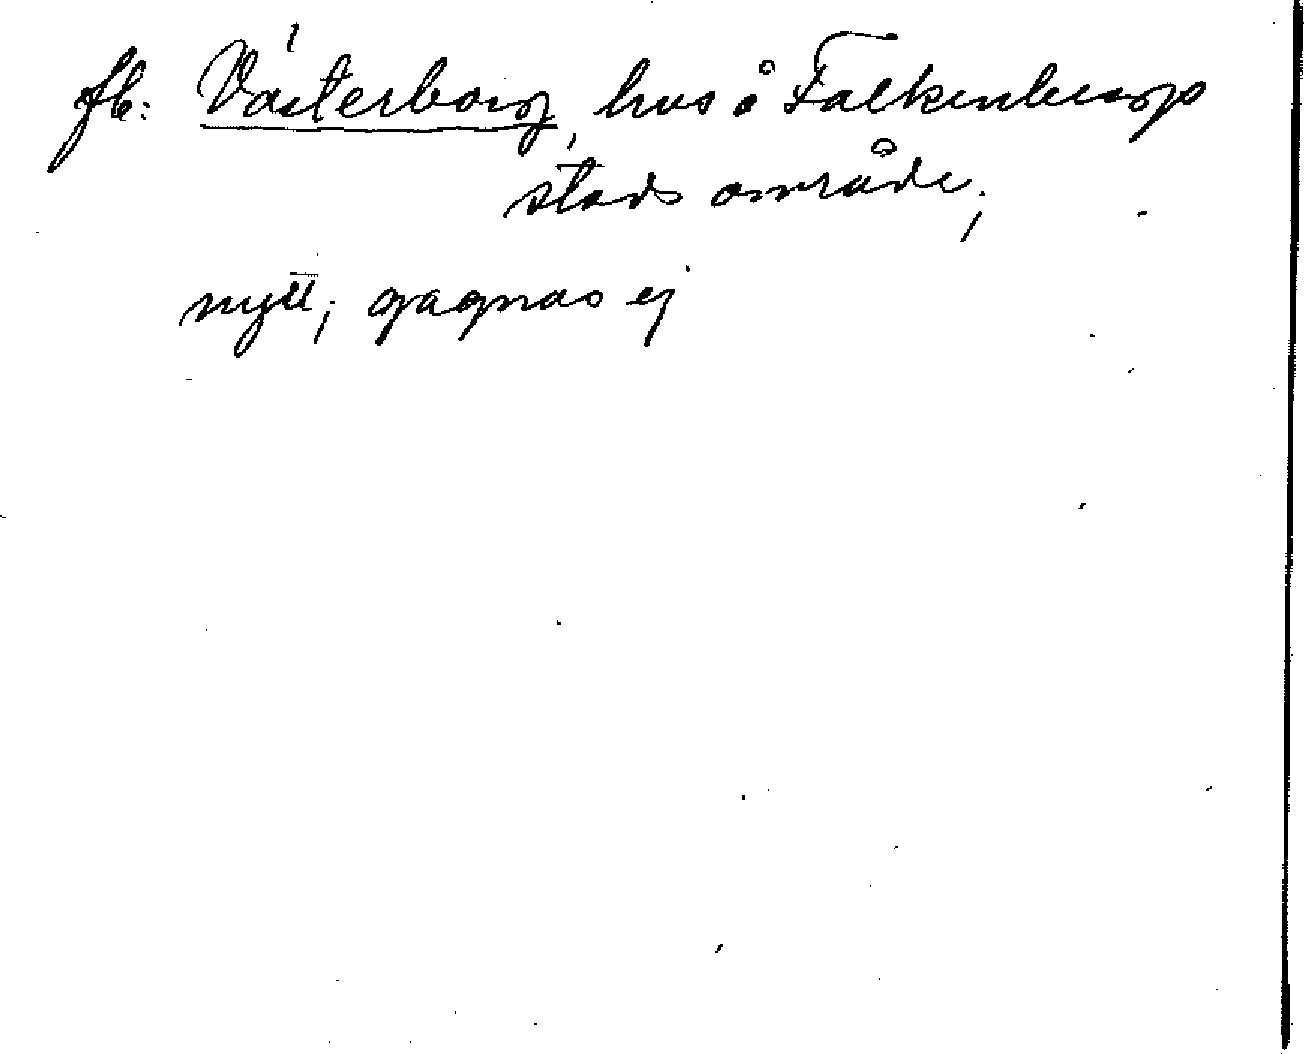 fb: Västerborg, hus å Falkenbergs
stads område;
nytt; gagnas ej